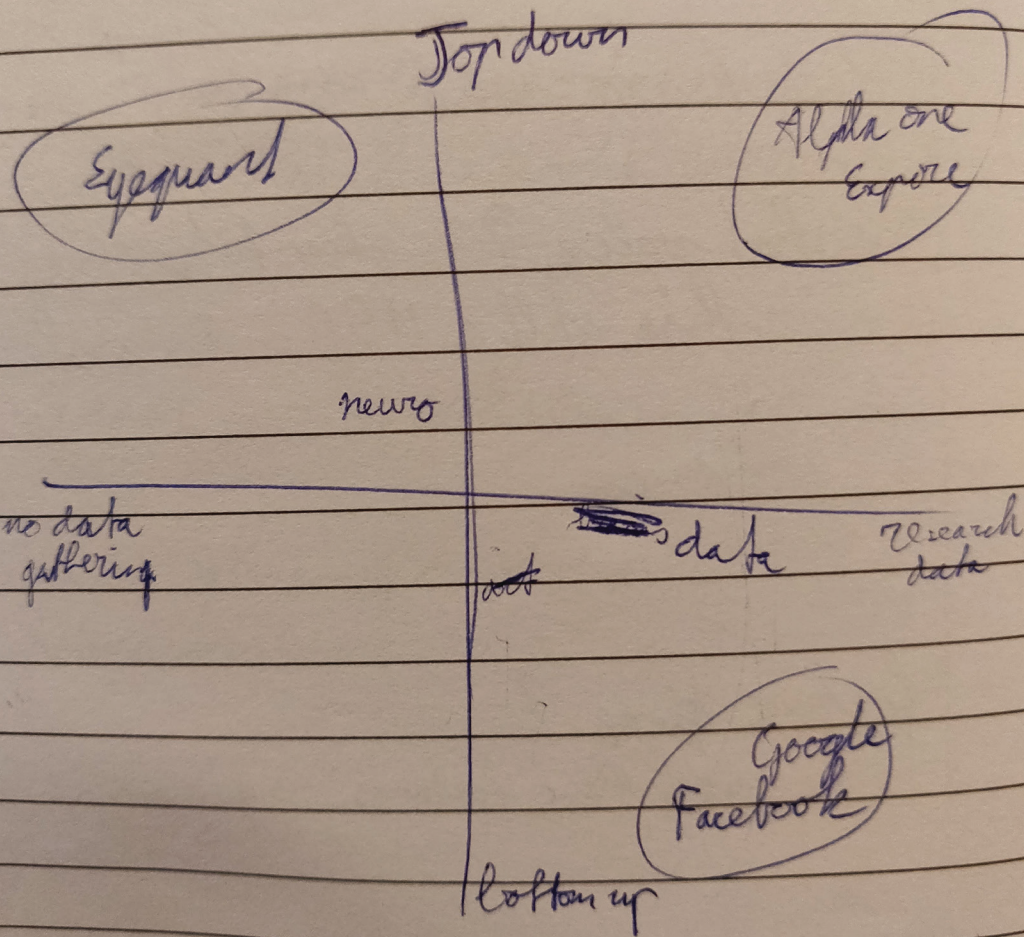 Top down
Eyequant
Alpha one
Expore
neuro
no data
gathering
data
research
data
Google
Facebook
bottom up